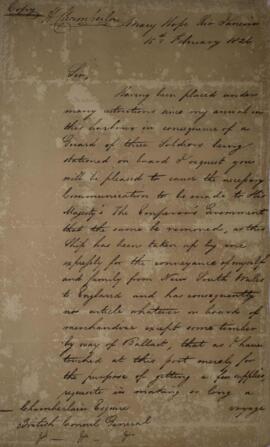 Copy
H. Chamberlain
Mary Hope Rio Janeiro
15th February 1826
Sir,
Having been placed under
many restrictions since my arrival in
this harbour in consequence of a
Guard of three Soldiers being
stationed on board I request you
will be pleased to cause the necessary
Communication to be made to His
Majesty's The Emperor's Government
that the same be removed, as this
Ship has been taken up by me
expressly for the conveyance of myself
and family from New South Wales
to England and has consequently
no article whatever on board of
merchandise except some timber
by way of Ballast, that as I have
touched at this port merely for
the purpose of getting a few supplies
requisite in making so long a
voyage
Chamberlain Esquire
British Consul General